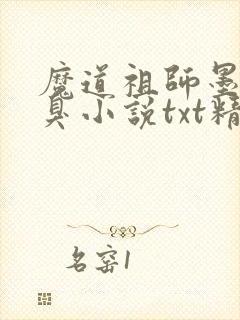 魔道祖師墨
臭小説txt精
名窑1